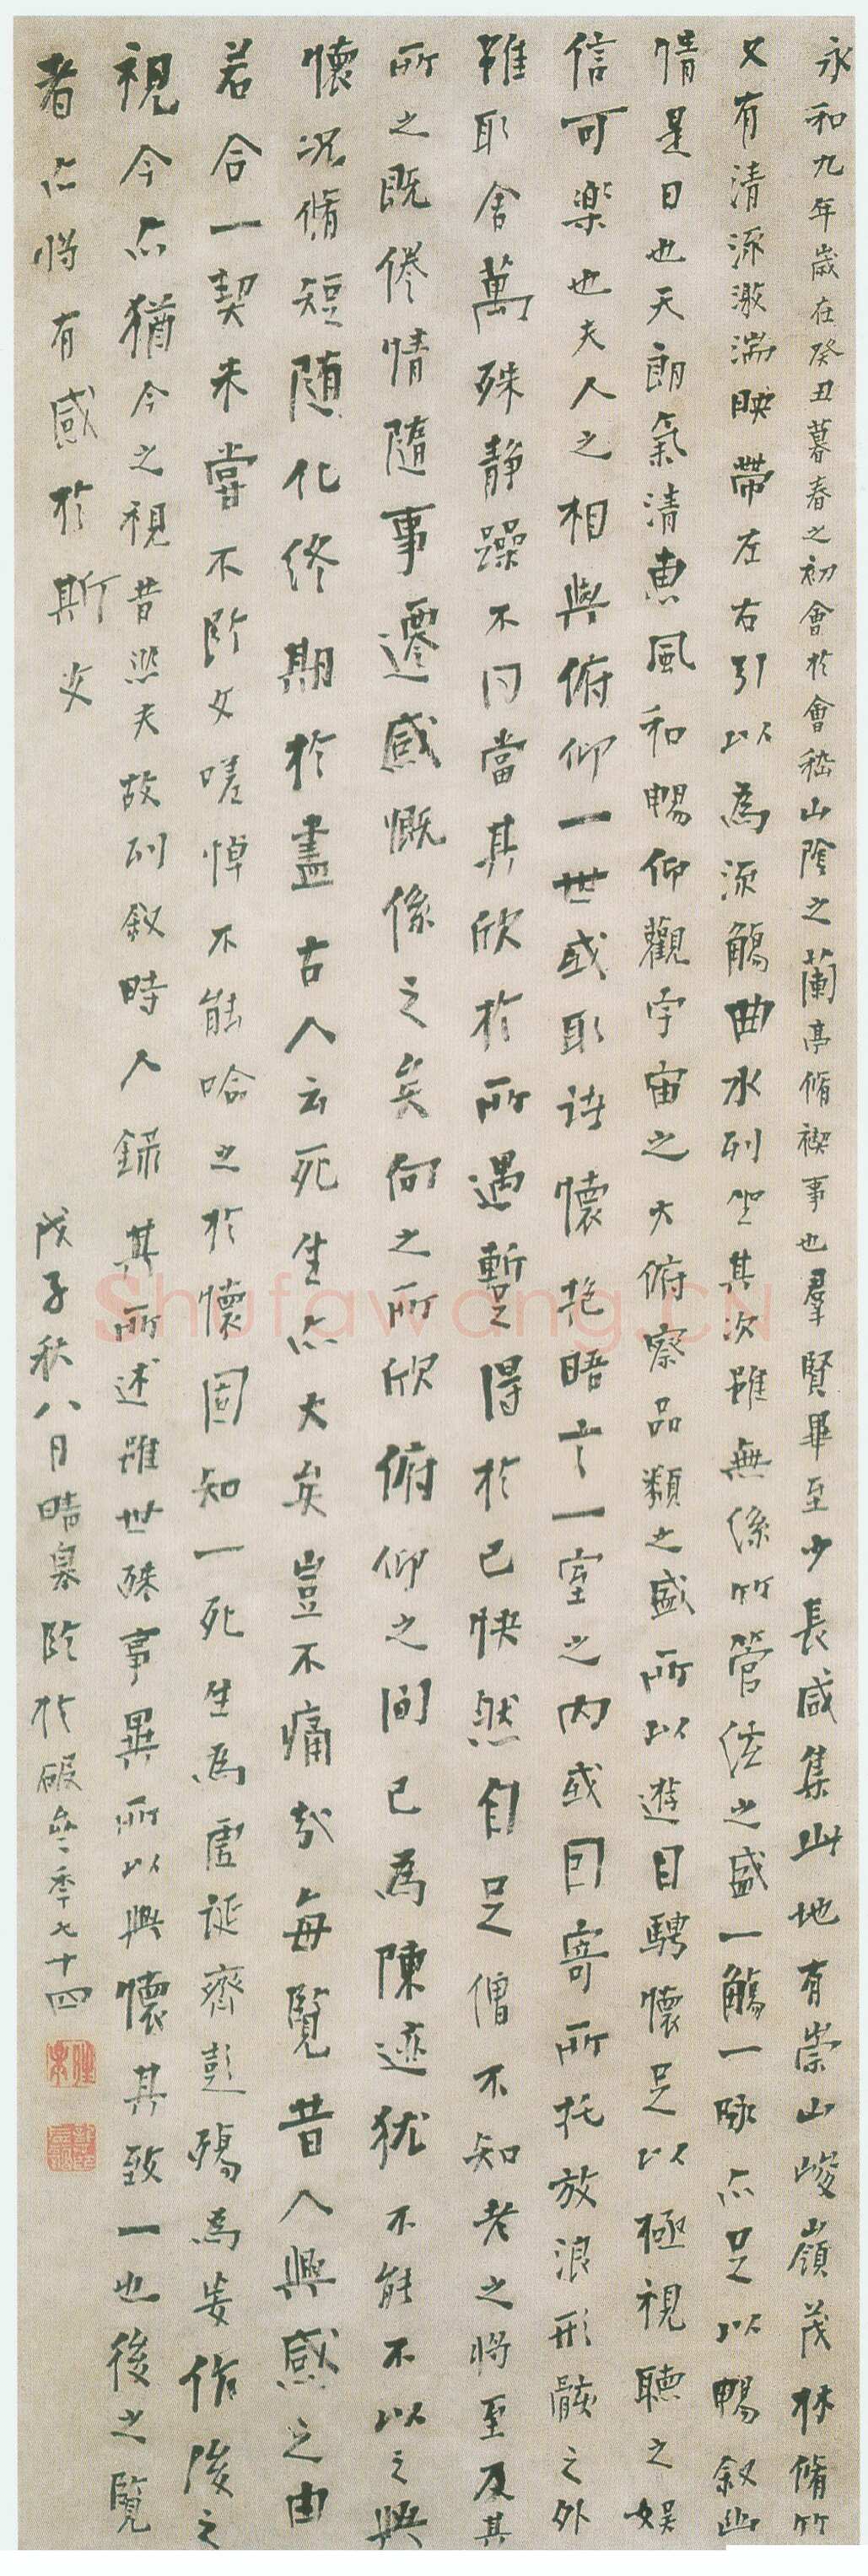 永和九年歲在癸丑暮春之初會於會嵇山陰之蘭亭脩禊事也羣賢畢至少長咸集此地有崇山峻嶺茂林脩竹
又有清流激湍映帶左右引以為流觴曲水列坐其次雖無絲竹管弦之盛一觴一詠亦足以暢敘幽
情是日也天朗氣清惠風和暢仰觀宇宙之大俯察品類之盛所以遊目騁懷足以極視聽之娛
信可樂也夫人之相與俯仰一世或取諸懷抱晤言一室之內或因寄所托放浪形骸之外
雖取舍萬殊靜躁不同當其欣於所遇暫得於己快然自足曾不知老之將至及其
所之既倦情隨事遷感慨係之矣向之所欣俯仰之間已為陳迹猶不能不以之興
懷況脩短隨化終期於盡古人云死生亦大矣豈不痛哉每覽昔人興感之由
若合一契未嘗不臨文嗟悼不能喻之於懷固知一死生為虛誕齊彭殤為妄作後之
視今亦猶今之視昔悲夫故列敘時人錄其所述雖世殊事異所以興懷其致一也後之覽
者亦將有感於斯文
戊子秋八月晴皋臨於破廬年七十四
Shufawang.CN